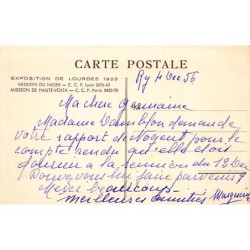 CARTE POSTALE
EXPOSITION DE LOURDES 1958
MISSION DU NIGER - C. C. P. Lyon 2676-67
MISSION DE HAUTE-VOLTA - C. C. P. Paris
Ry 4 Dec 56
Ma chere Germaine
Madame Damblon demande
votre rapport de Nogent pour le
compte rendu qu'elle doit
donner a la reunion du 12 Dec
Pouvez vous me le faire parvenir ?
Merci beaucoup
meilleures amitiés